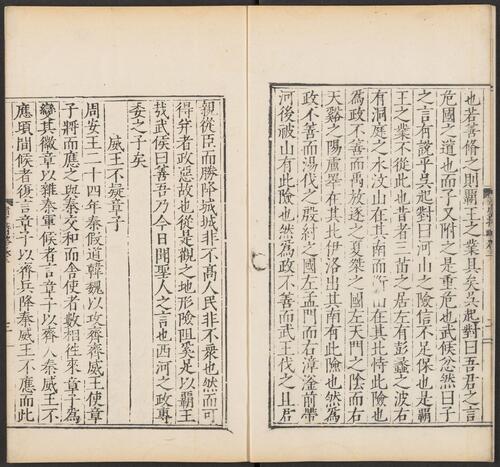 也若善脩之則覇王之業具矣吳起對曰吾君之言
危國之道也而子又附之是重危也武候忿然曰子
之言有說乎吳起對曰河山之險信不足保也是覇
王之業不從此也昔者三苗之居左有彭蠡之波右
有洞庭之水汶山在其南而衡山在其北恃此險也
為政不善而禹放逐之夏桀之國左天門之陰而右
天谿之陽廬睪在其北伊洛出其南有此險也然為
政不善而湯伐之殷紂之國左孟門而右漳滏前帶
河後被山有此險也然為政不善而武王伐之且君
親從臣而勝降城城非不髙人民非不衆也然而可
得并者政惡故也從是觀之地形險阻奚足以覇王
㦲武侯曰善吾乃今日聞聖人之言也西河之政專
委之子矣
威王不疑章子
周安王二十四年秦假道韓魏以攻齊齊威王使章
子將而應之與秦交和而舎使者數相徃來章子為
變其徽章以雜秦軍候者言章子以齊入秦威王不
應頃間候者復言章子以齊兵降秦威王不應而此